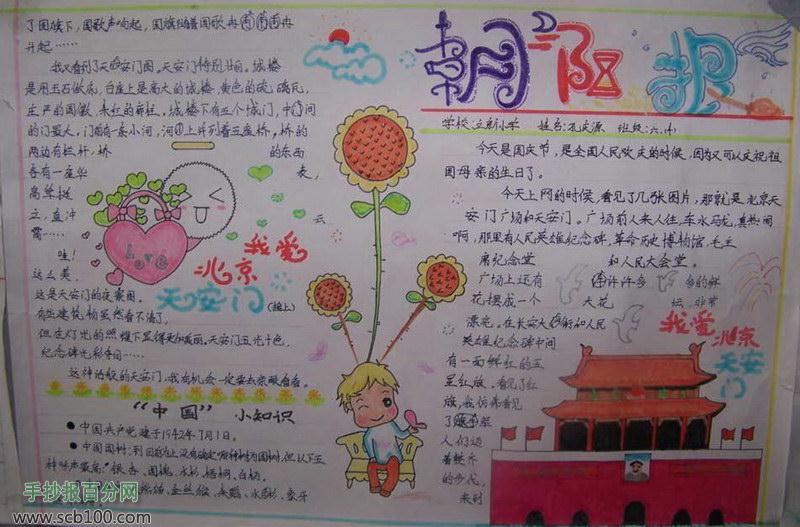 朝阳报
学校:立新小学 姓名:孔庆源 班级:六.(4)
今天是国庆节，是全国人民欢庆的时候，因为又可以庆祝祖
国母亲的生日了。
今天上网的时候，看见了几张图片，那就是北京天
安门广场和天安门。广场前人来人往，车水马龙，真热闹
啊，那里有人民英雄纪念碑，革命历史博物馆，毛主
席纪念堂 和人民大会堂。
广场上还有 许许多多的鲜
花摆成一个 大花坛，非常
漂亮。在长安大街和人民
英雄纪念碑中间
有一面鲜红的五
星红旗，看见了红
旗，我仿佛看见
了
人们迈
着整齐
的步伐，
来到
了国旗下，国歌声响起，国旗随着国歌冉冉
升起……
我又看到了天安门图。天安门特别壮丽。城楼
是用玉石做底，台座上是高大的城楼，黄色的琉璃瓦，
庄严的国徽，朱红的廊柱。城楼下有五个城门，中间
的门最大，门前有一条小河，河上并列着五座桥，桥的
两边有栏杆，桥 的东西
各有一座华表，
高耸挺
立，直冲云
霄……
哇！
这么美，
这是天安门的夜景图。
有些建筑物虽然看不清了，
但在灯光的照耀下显得更加美丽。天安门五光十色，
纪念碑光彩夺目……
这神话般的天安门，我有机会一定要去亲眼看看。
Love
我爱
北京
天安门
(接上)
我爱
北京
天安
门
"中国" 小知识
中国共产党建于1942年7月1日。
中国国树：到目前为止没有确定哪种树为国树，但以下五
种呼声最高：银杏、国槐、水杉、梧桐、白杨。
手抄报百分网
www.scb100.com